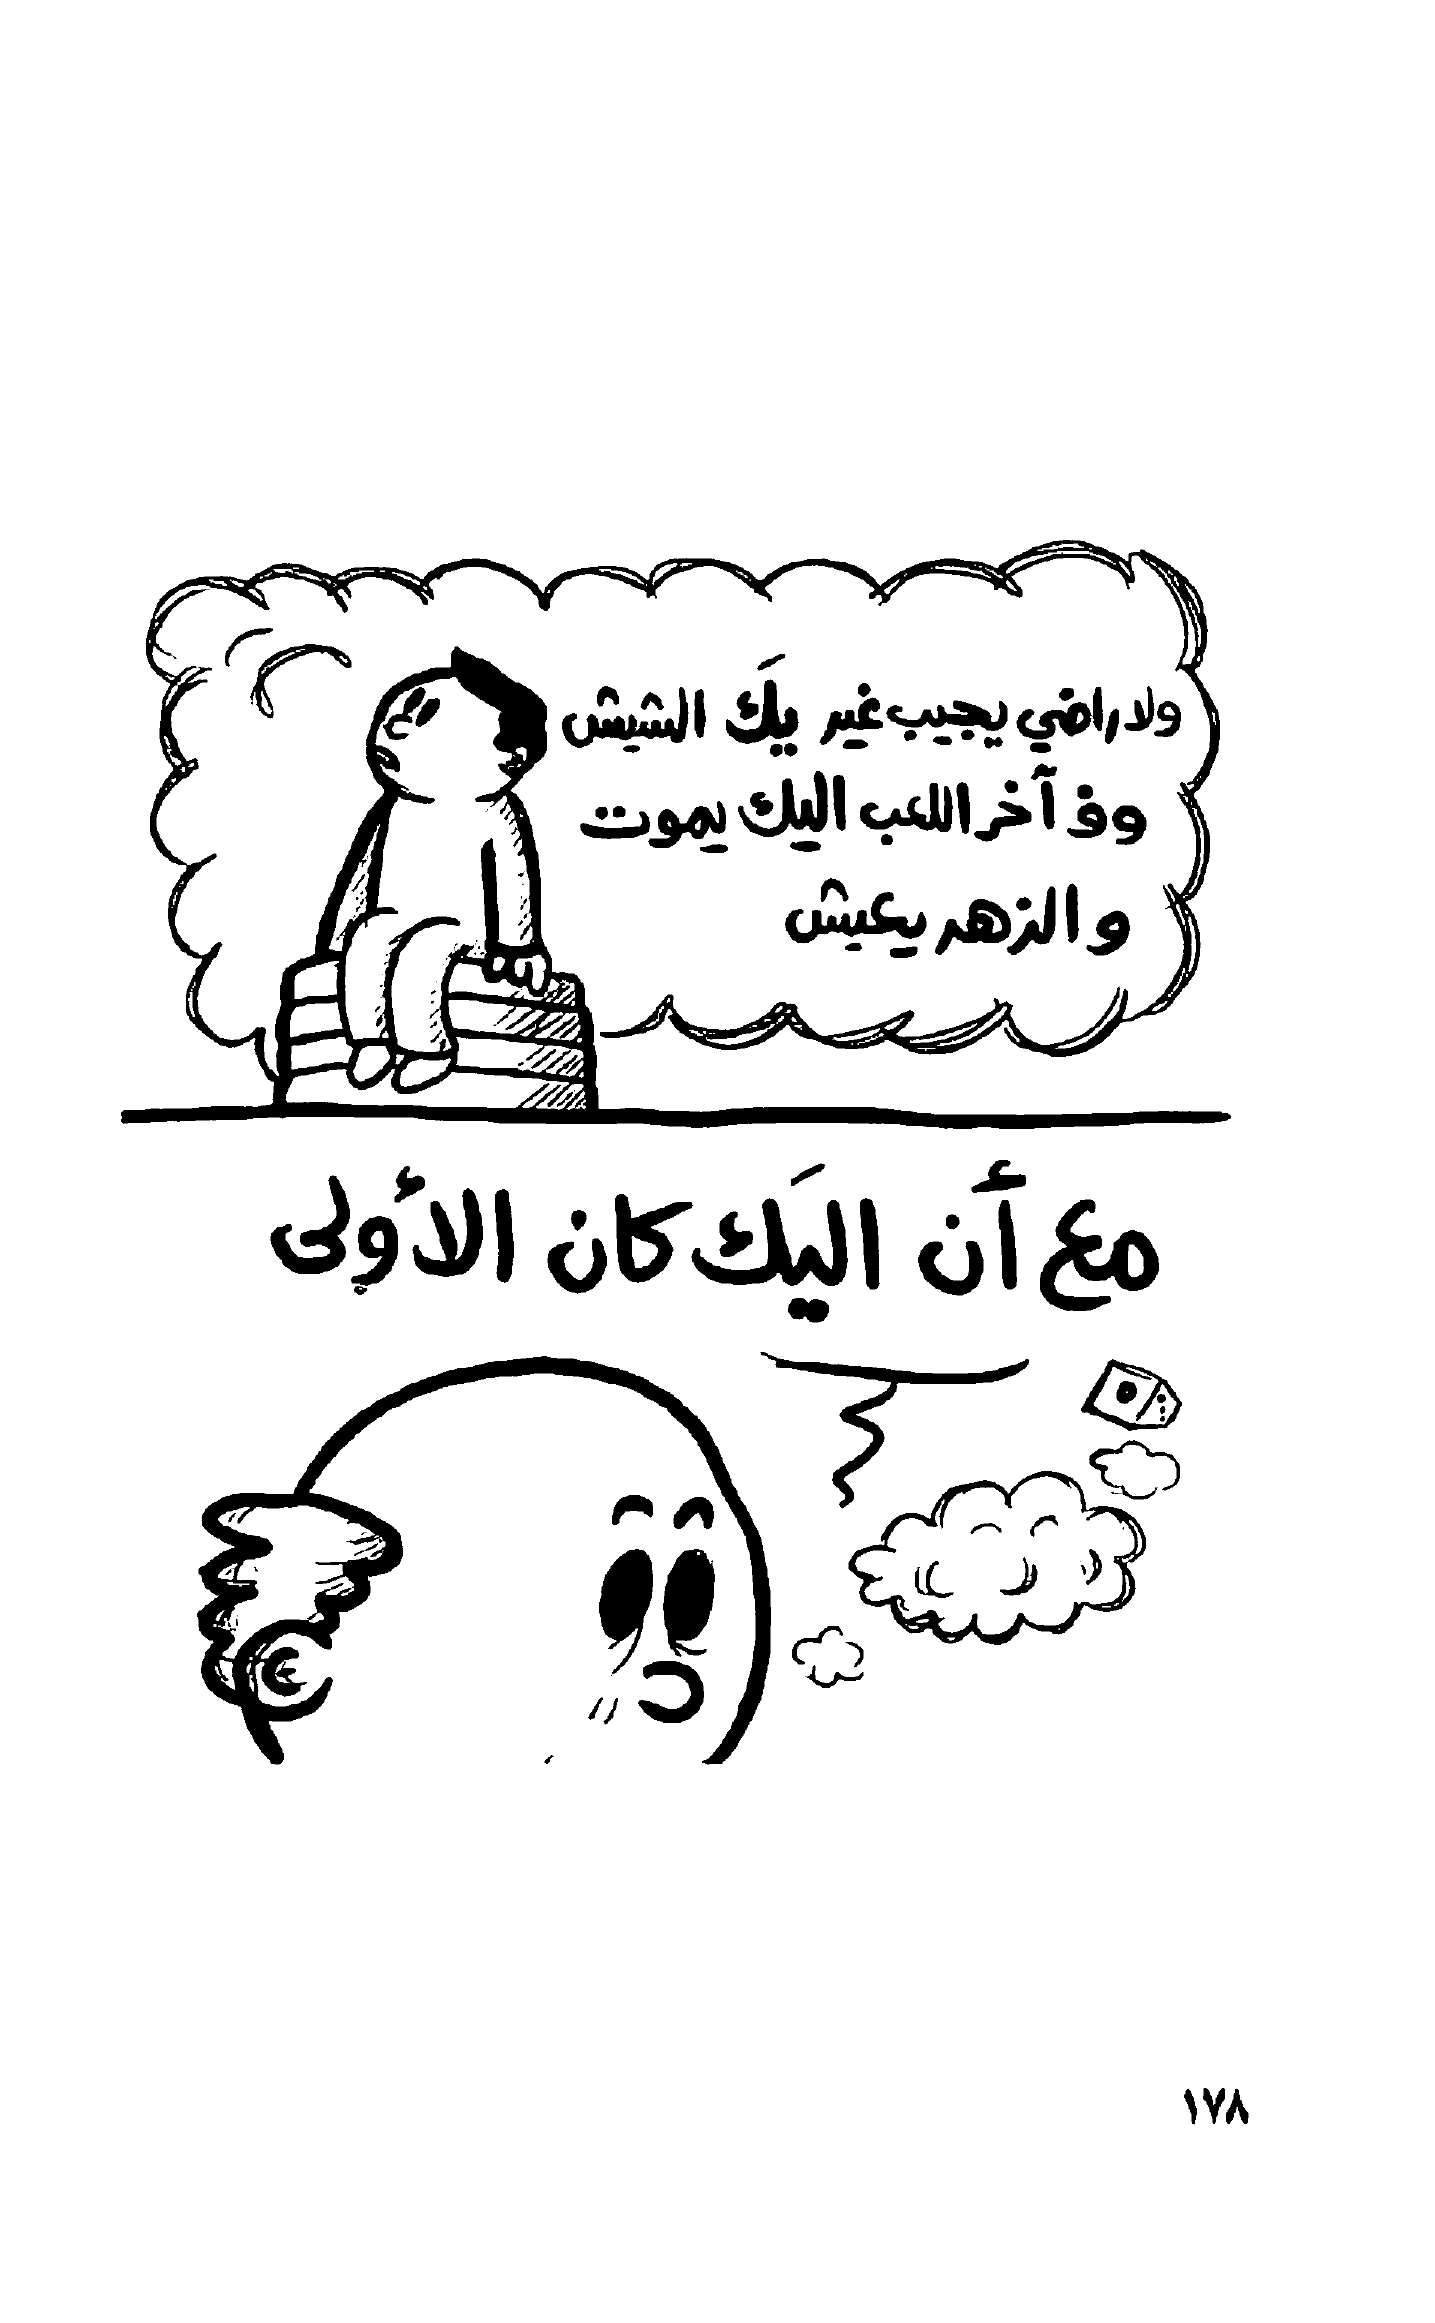 ولا راضي يجيب غير يَك الشيش
وف آخر اللعب اليك يموت
و الزهر يعيش
مع أن اليَك كان الأولى
١٧٨